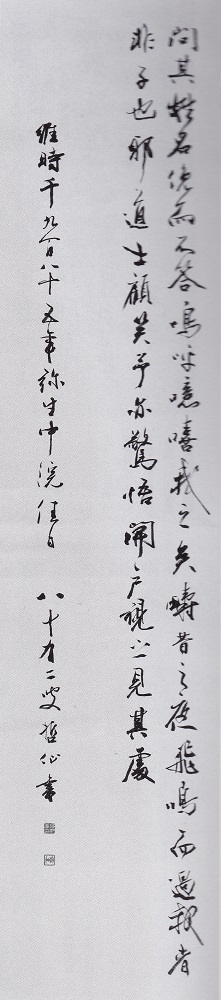 問其姓名俛而不答嗚呼噫嘻我之矣疇昔之夜飛鳴而過我者
非子也邪道士顧笑予亦驚悟開戶視之不見其處
維時千九百八十五年弥生中浣佳日　八十有二叟哲仙書